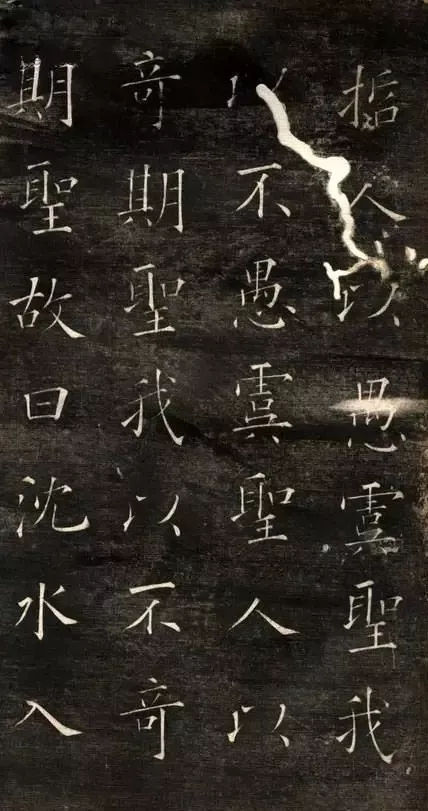 哲人以愚虞聖我
以不愚虞聖人以
奇期聖我以不奇
期聖故曰沈水入